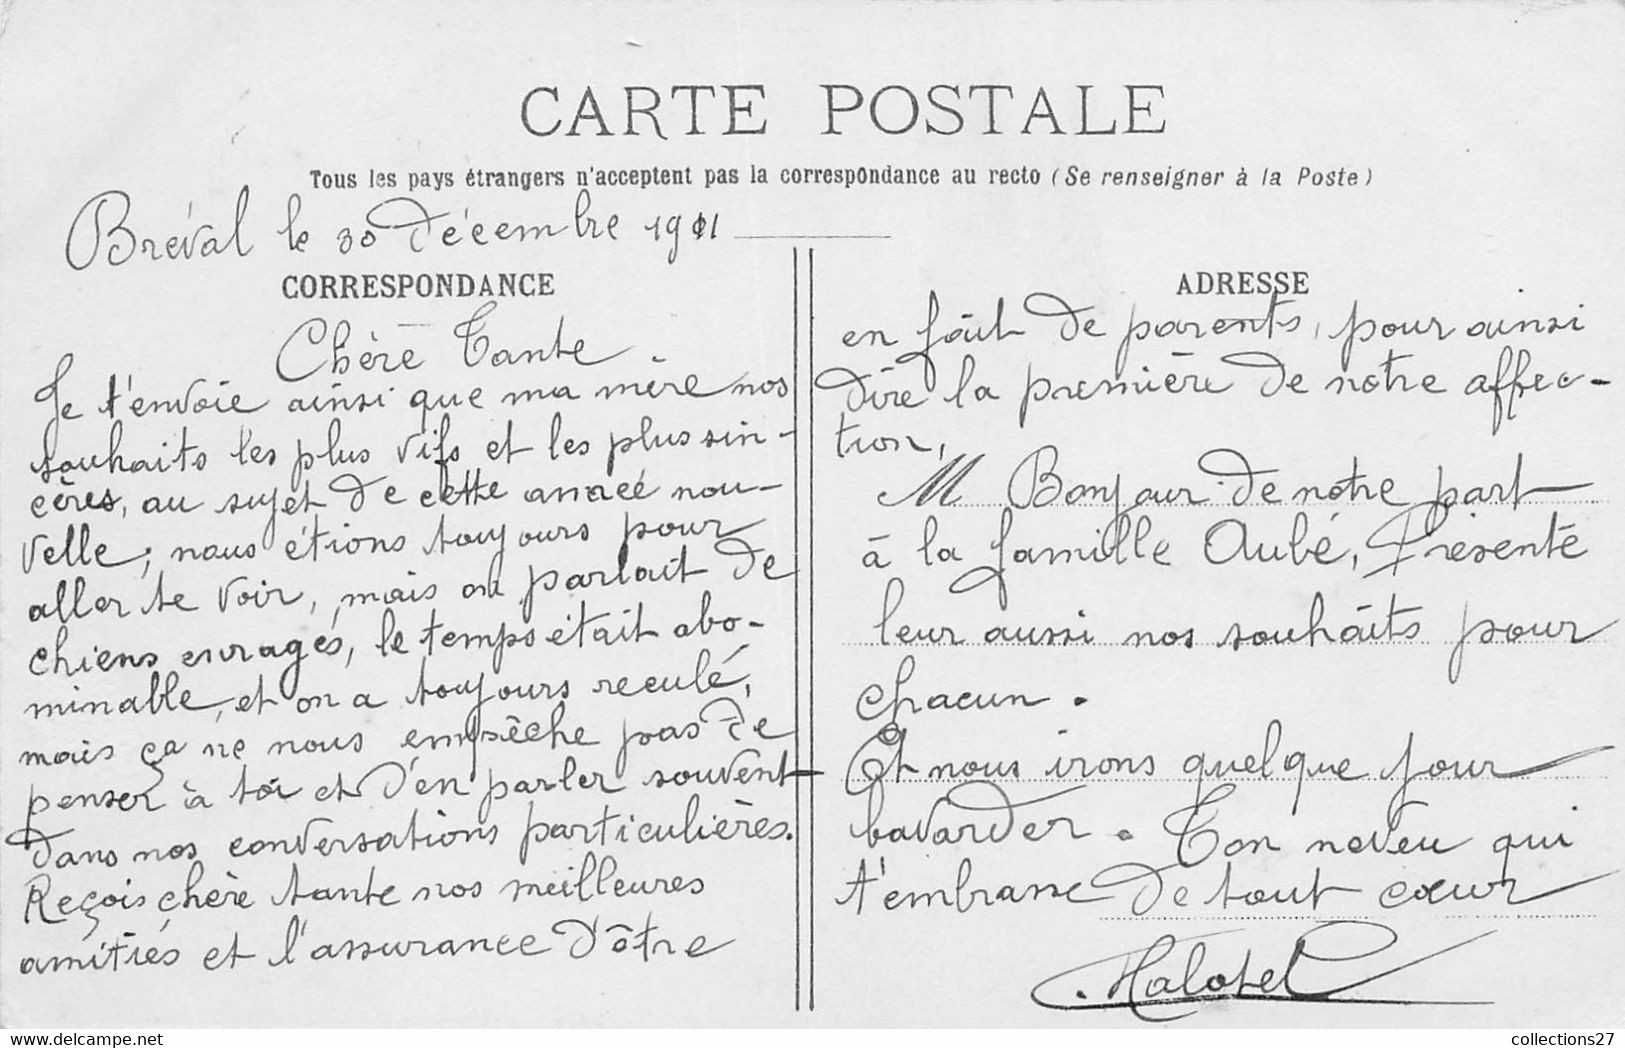 CARTE POSTALE
Tous les pays étrangers n'acceptent pas la correspondance au recto (Se renseigner à la Poste)
Bréval le 30 Décembre 1911
CORRESPONDANCE
Chère Tante.
Je t'envoie ainsi que ma mère nos
souhaits les plus vifs et les plus sin-
cères, au sujet de cette année nou-
velle; nous étions toujours pour
aller te voir, mais on parlait de
chiens enragés, le temps était abo-
minable, et on a toujours reculé,
mais ça ne nous empêche pas de
penser à toi et d'en parler souvent
dans nos conversations particulières.
Reçois chère tante nos meilleures
amitiés et l'assurance d'être
ADRESSE
en fait de parents, pour ainsi
dire la première de notre affec-
tion,
M Bonjour de notre part
à la famille Aubé, Présente
leur aussi nos souhaits pour
chacun.
Et nous irons quelque jour
bavarder. Ton neveu qui
t'embrasse de tout cœur
Halotel
collections27